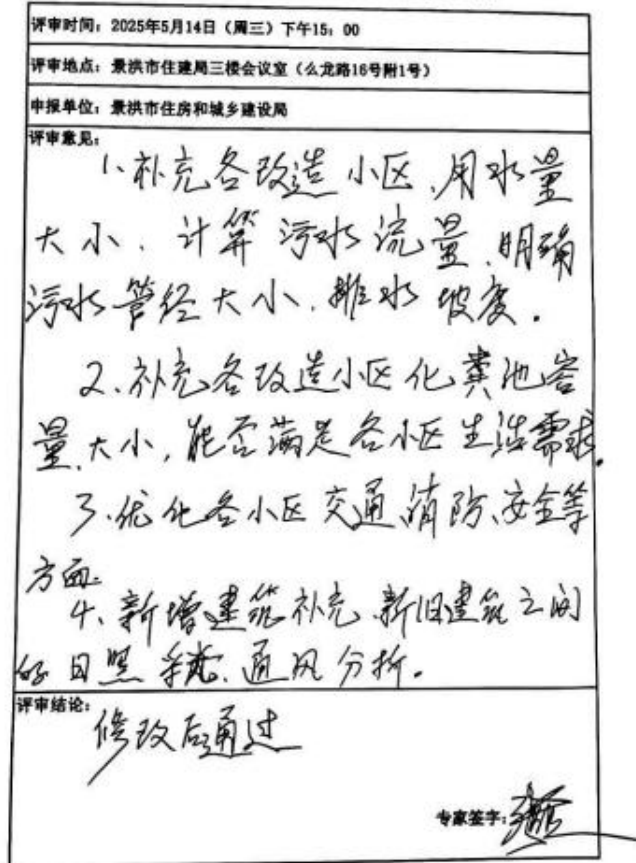 评审时间：2025年5月14日（周三）下午15：00
评审地点：景洪市住建局三楼会议室（么龙路16号附1号）
申报单位：景洪市住房和城乡建设局
评审意见：
1.补充各改造小区、用水量
大小、计算污水流量、明确
污水管径大小、排水坡度.
2.补充各改造小区化粪池容
量、大小，能否满足各小区生活需求.
3.优化各小区交通、消防、安全等
方面.
4、新增建筑补充新旧建筑之间
的日照、通风分析.
评审结论：
修改后通过
专家签字：